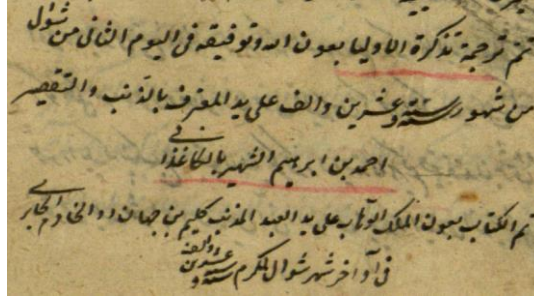 تم ترجمة تذكرة الاوليا بعون الله وتوفيقه فى اليوم الثانى من شوال
من شهور سنة ستة وعشرين والف على يد المعترف بالذنب والتقصير
احمد بن ابرهيم الشهير بالكاغذى
تم الكتاب بعون الملك الوهاب على يد العبد المذنب كليم بن جهان
فى آواخر شهر شوال المكرم سنة وعشرين والف